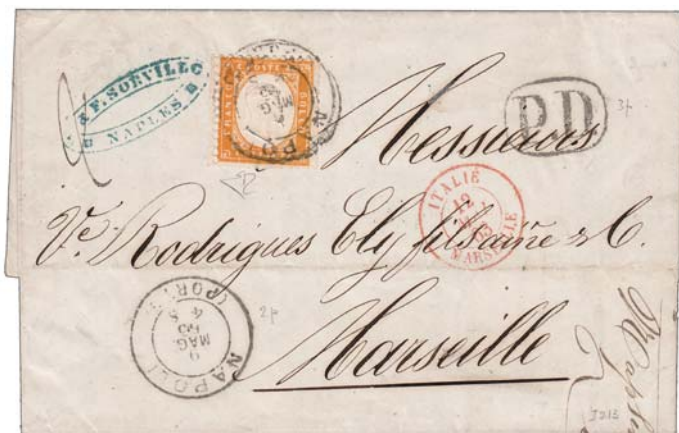 F. SORVILLO
NAPLES
NAPOLI
MAG
P.D.
3p
Messieurs
ITALIE
12
63
MARSEILLE
Ve. Rodrigues Ely fils ainé & C.
NAPOLI
(PORTO)
9
MAG
63
4 S
2p
Marseille